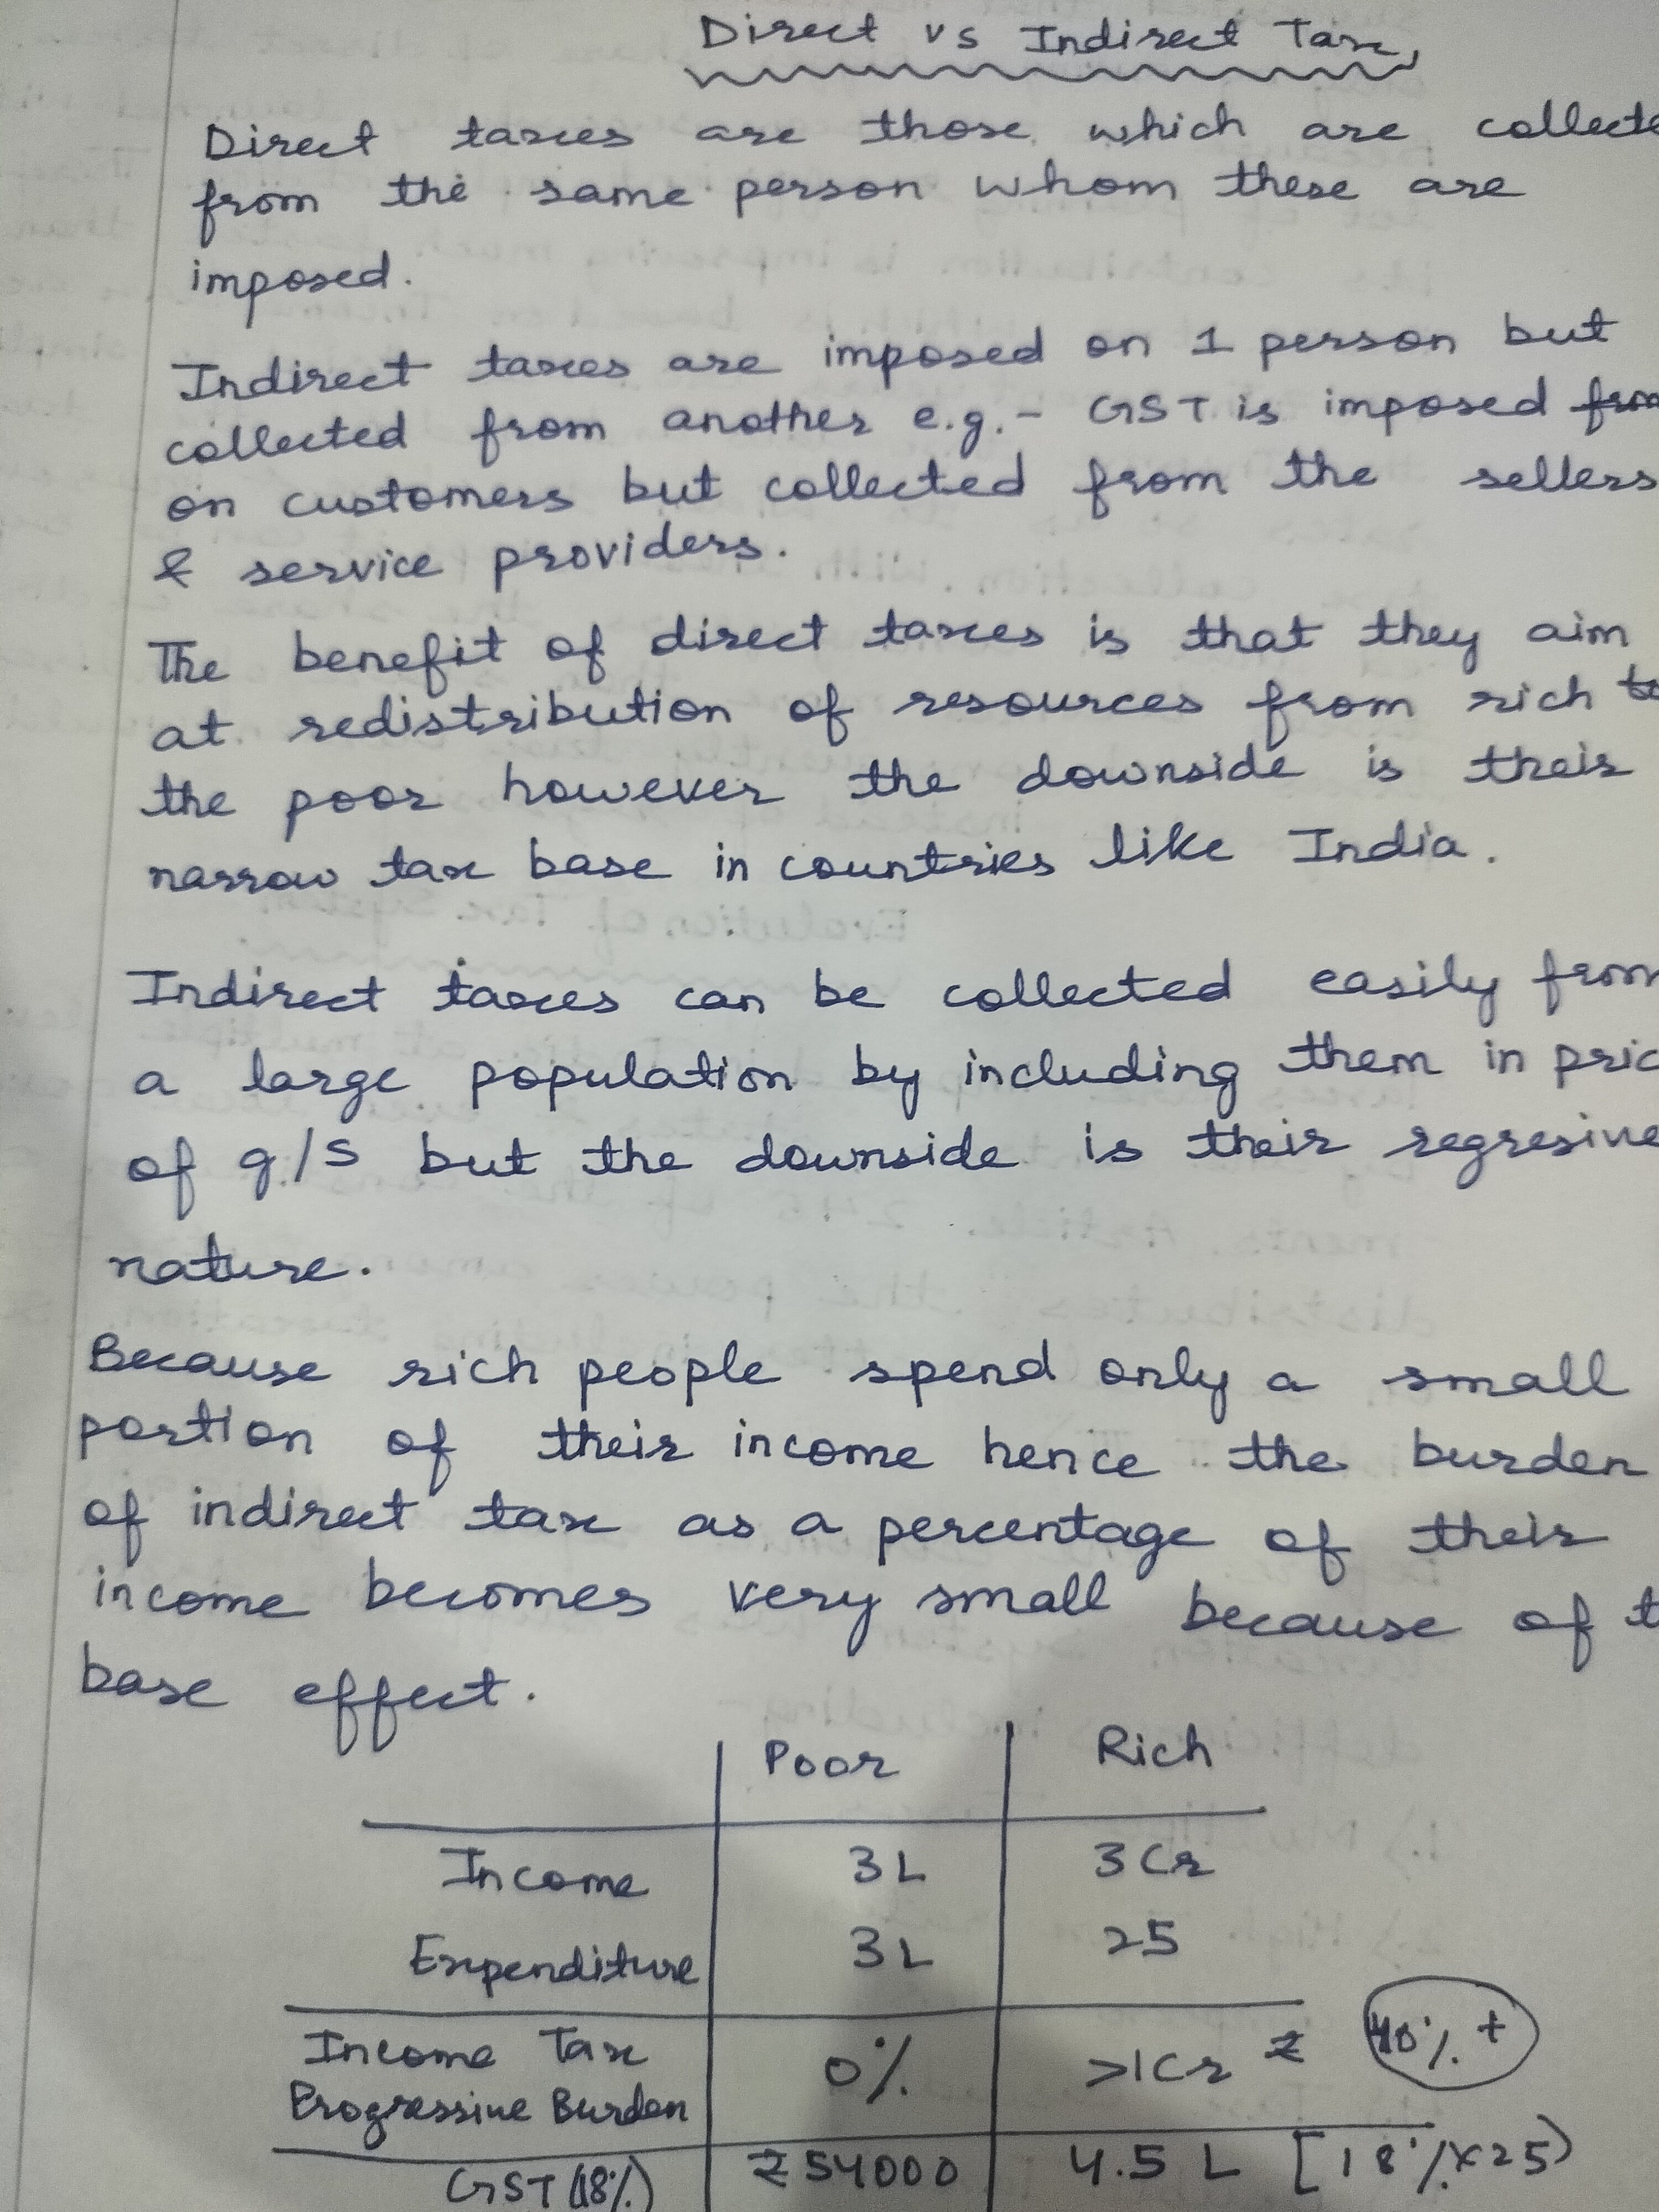 Direct vs Indirect Tax
Direct taxes are those which are collecte
from the same person whom these are
imposed.
Indirect taxes are imposed on 1 person but
collected from another e.g.- GST is imposed from
on customers but collected from the sellers
& service providers.
The benefit of direct taxes is that they aim
at redistribution of resources from rich to
the poor however the downside is their
narrow tax base in countries like India.
Indirect taxes can be collected easily from
a large population by including them in pric
of g/s but the downside is their regresive
nature.
Because rich people spend only a small
portion of their income hence the burden
of indirect tax as a percentage of their
income becomes very small because of t
base effect.
Poor Rich
Income 3L 3Cr
Expenditure 3L 25
Income Tax 0% >1Cr ₹ 40% +
Progressive Burden
GST (18%) ₹54000 4.5 L [18% x 25)